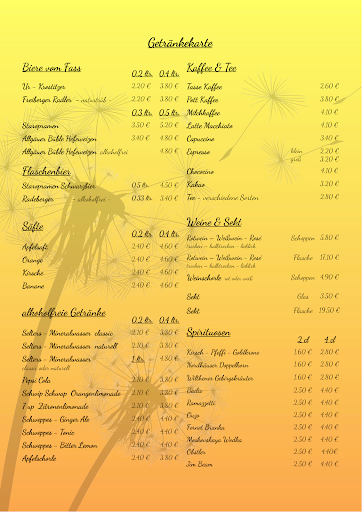 Getränkekarte
Biere vom Fass 0,2 ltr. 0,4 ltr.
Ur - Krostitzer 2.20 € 3.80 €
Freiberger Radler - naturtrüb - 2.20 € 3.80 €
0,3 ltr. 0,5 ltr.
Staropramen 3.50 € 5.20 €
Allgäuer Büble Hefeweizen 3.40 € 4.80 €
Allgäuer Büble Hefeweizen alkoholfrei 4.80 €
Flaschenbier
Staropramen Schwarzbier 0,5 ltr. 4.50 €
Radeberger - alkoholfrei - 0,33 ltr. 3.40 €
Säfte 0,2 ltr. 0,4 ltr.
Apfelsaft 2.40 € 4.60 €
Orange 2.40 € 4.60 €
Kirsche 2.40 € 4.60 €
Banane 2.40 € 4.60 €
alkoholfreie Getränke 0,2 ltr. 0,4 ltr.
Selters - Mineralwasser classic 2.10 € 3.80 €
Selters - Mineralwasser naturell 2.10 € 3.80 €
Selters - Mineralwasser 1 ltr. 4.80 €
classic oder naturell
Pepsi Cola 2.10 € 3.80 €
Schwip Schwap Orangenlimonade 2.10 € 3.80 €
7-up Zitronenlimonade 2.10 € 3.80 €
Schweppes - Ginger Ale 2.40 € 4.40 €
Schweppes - Tonic 2.40 € 4.40 €
Schweppes - Bitter Lemon 2.40 € 4.40 €
Apfelschorle 2.40 € 3.80 €
Kaffee & Tee
Tasse Kaffee 2.60 €
Pott Kaffee 3.80 €
Milchkaffee 4.10 €
Latte Macchiato 4.10 €
Capuccino 3.20 €
Espresso klein 2.20 €
groß 3.20 €
Chococino 4.10 €
Kakao 3.20 €
Tee - verschiedene Sorten 2.80 €
Weine & Sekt
Rotwein - Weißwein - Rosé Schoppen 5.80 €
trocken - halbtrocken - lieblich
Rotwein - Weißwein - Rosé Flasche 17.20 €
trocken - halbtrocken - lieblich
Weinschorle rot oder weiß Schoppen 4.90 €
Sekt Glas 3.50 €
Sekt Flasche 19.50 €
Spirituosen 2 cl 4 cl
Kirsch - Pfeffi - Goldkrone 1.60 € 2.80 €
Nordhäuser Doppelkorn 1.60 € 2.80 €
Wilthener Gebirgskräuter 1.60 € 2.80 €
Becks 2.50 € 4.40 €
Ramazotti 2.50 € 4.40 €
Ouzo 2.50 € 4.40 €
Fernet Branka 2.50 € 4.40 €
Moskovskaya Wodka 2.50 € 4.40 €
Obstler 2.50 € 4.40 €
Jim Beam 2.50 € 4.40 €